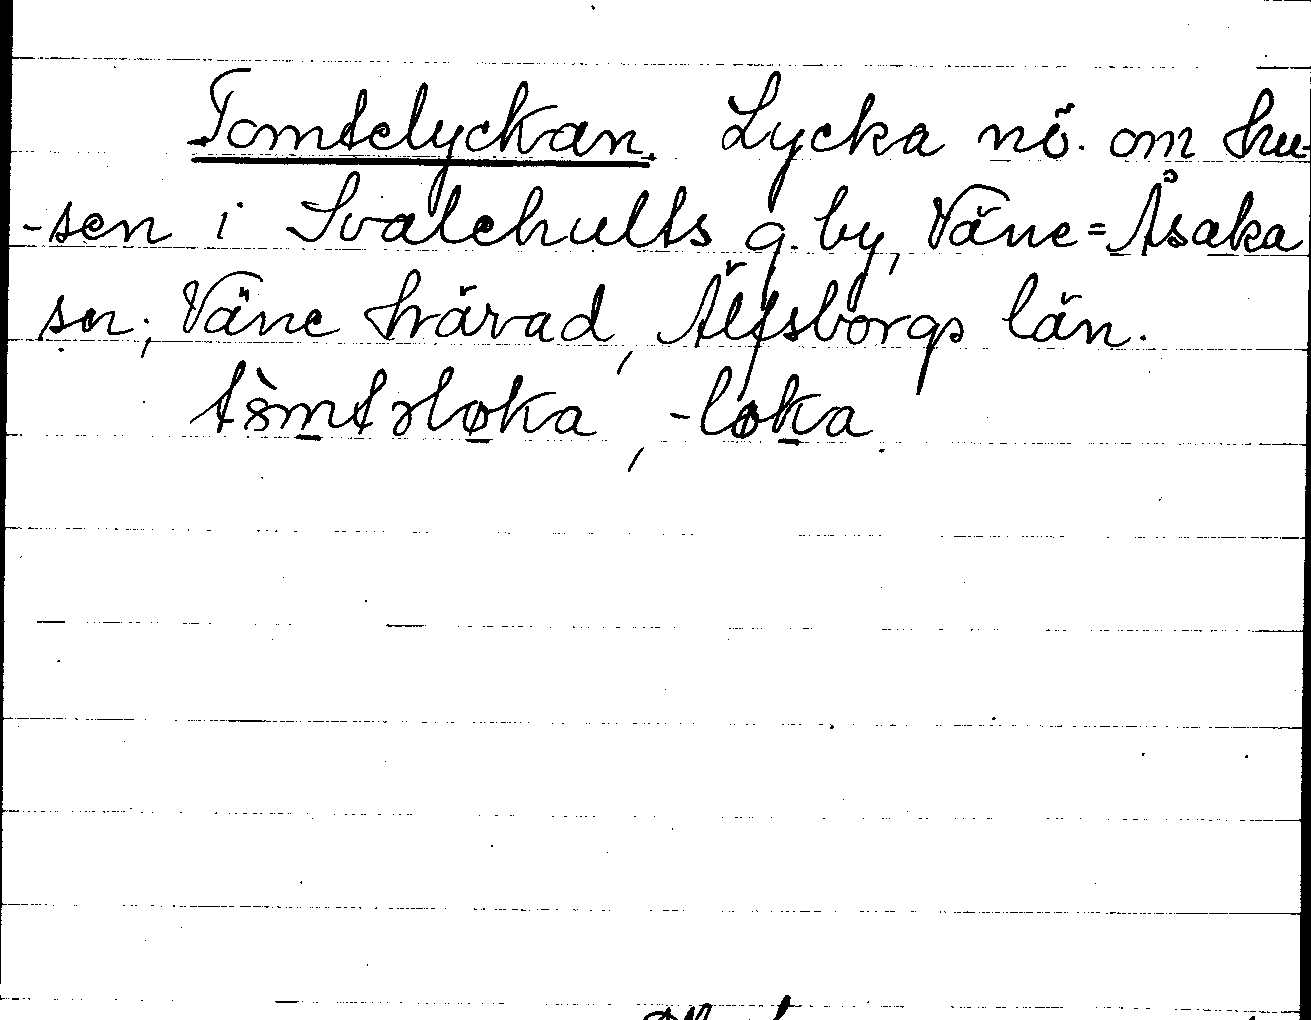 Tomtelyckan. Lycka nö. om hu-
-sen i Svalehults g. by, Väne=Åsaka
sn, Väne härad, Älfsborgs län.